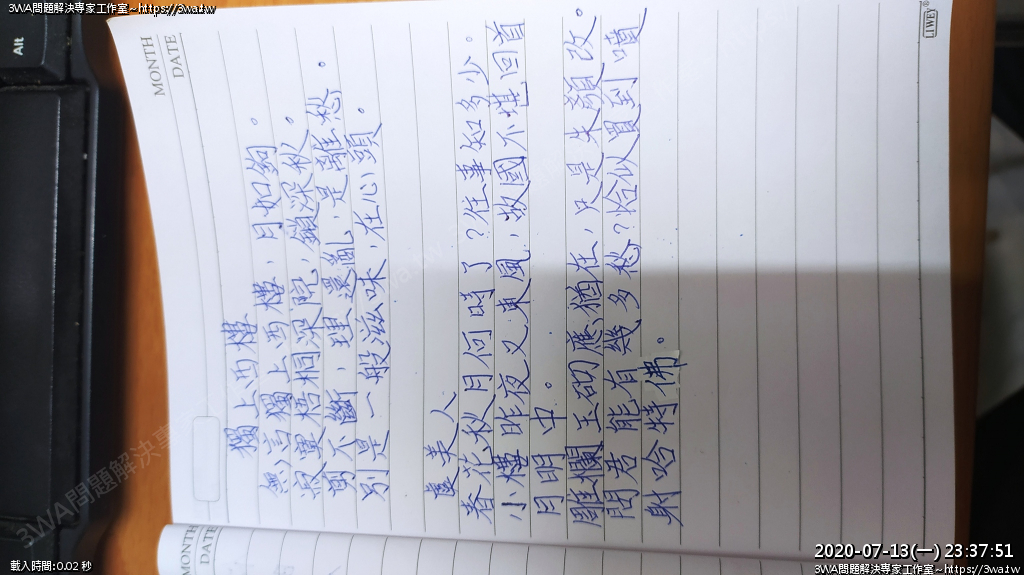 3WA問題解決專家工作室~https://3wa.tw
Alt
MONTH
DATE
IWI
獨上西樓
無言獨上西樓，月如鉤。
寂寞梧桐深院，鎖深秋。
剪不斷，理還亂，是離愁。
別是一般滋味，在心頭。
虞美人
春花秋月何時了？往事知多少。
小樓昨夜又東風，故國不堪回首
月明中。
雕欄玉砌應猶在，只是朱顏改。
問君能有幾多愁？恰似買到噴
射哈特佛。
MONTH
DATE
載入時間:0.02 秒
2020-07-13(一) 23:37:51
3WA問題解決專家工作室~https://3wa.tw